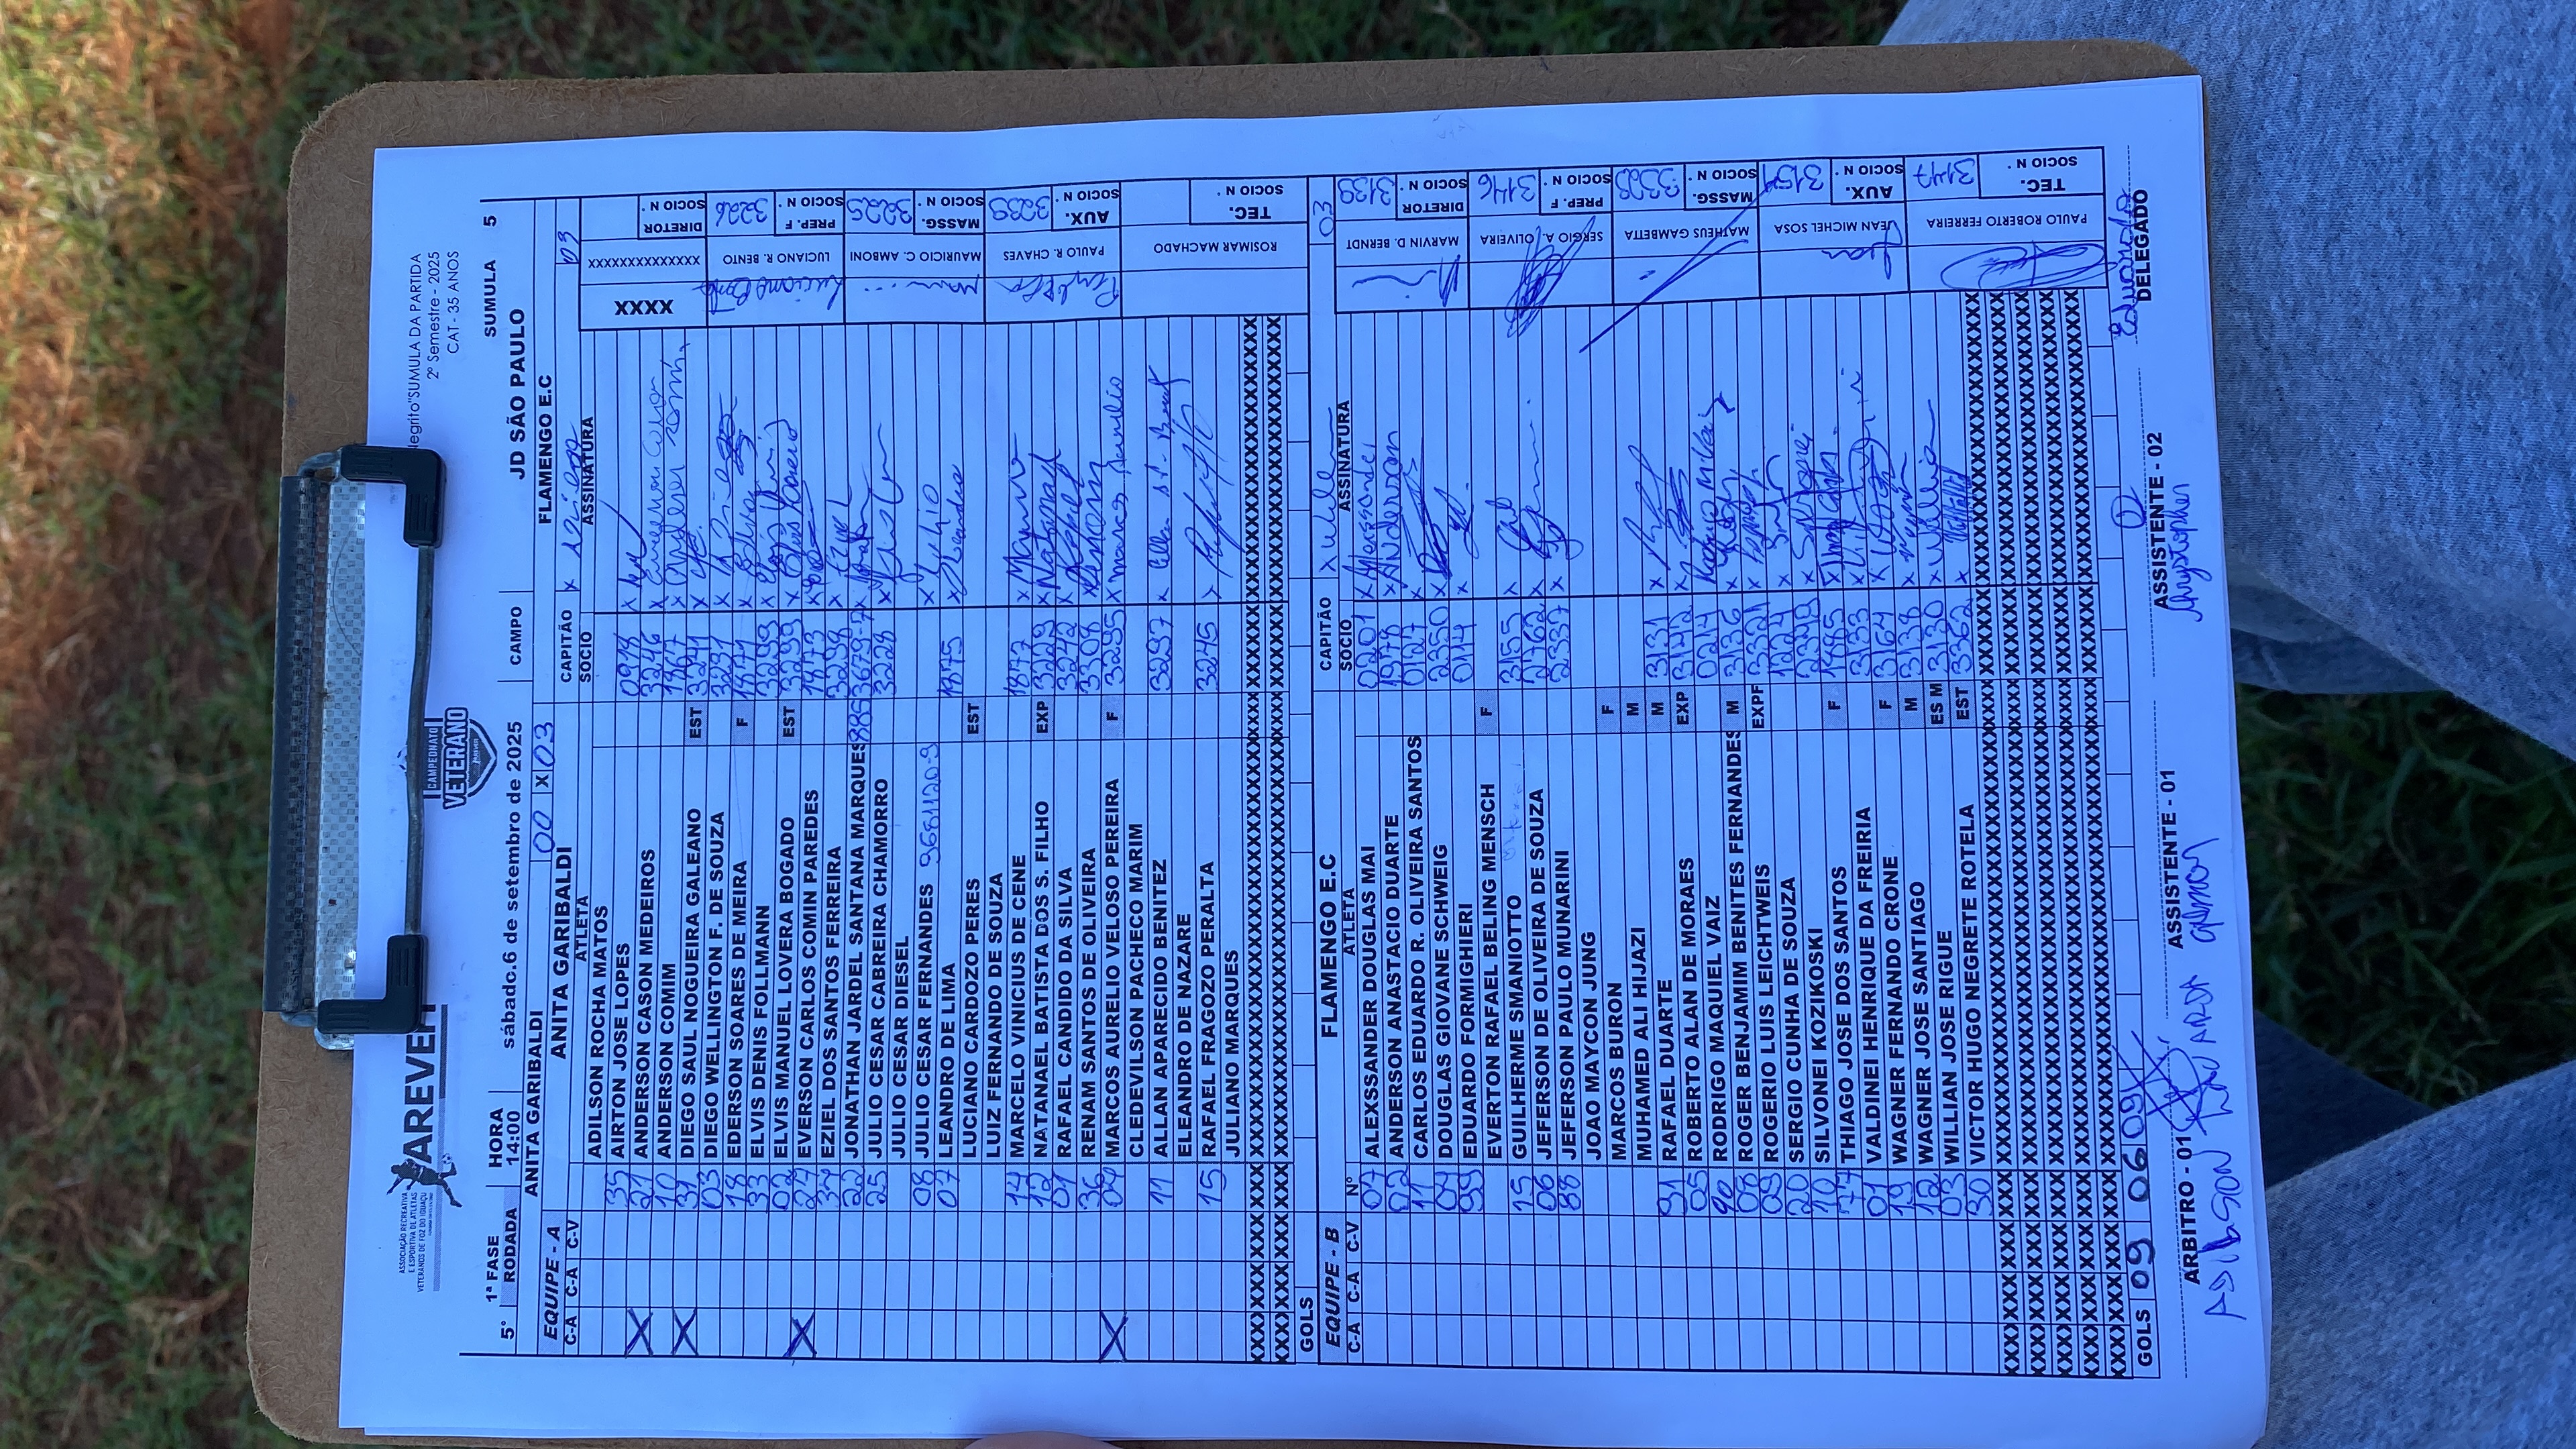 ASSOCIAÇÃO RECREATIVA
E ESPORTIVA DE ATLETAS
VETERANOS DE FOZ DO IGUAÇU
CAMPEONATO
VETERANO
SUMULA DA PARTIDA
2º Semestre - 2025
CAT - 35 ANOS
1ª FASE HORA sábado.6 de setembro de 2025 CAMPO JD SÃO PAULO SUMULA 5
5° RODADA 14:00
ANITA GARIBALDI 00 X 03 FLAMENGO E.C
EQUIPE - A ANITA GARIBALDI CAPITÃO 03
C-A C-A C-V ATLETA SOCIO ASSINATURA
ADILSON ROCHA MATOS
35 AIRTON JOSE LOPES 0918
X 21 ANDERSON CASON MEDEIROS 3246
10 ANDERSON COMIM 1867
X 31 DIEGO SAUL NOGUEIRA GALEANO EST 3241
03 DIEGO WELLINGTON F. DE SOUZA 3231
18 EDERSON SOARES DE MEIRA F 1871
33 ELVIS DENIS FOLLMANN 3293
02 ELVIS MANUEL LOVERA BOGADO EST 3299
X 27 EVERSON CARLOS COMIN PAREDES 1873
34 EZIEL DOS SANTOS FERREIRA 3238
22 JONATHAN JARDEL SANTANA MARQUES
25 JULIO CESAR CABREIRA CHAMORRO 3228
JULIO CESAR DIESEL
08 JULIO CESAR FERNANDES Julio
07 LEANDRO DE LIMA 1875 Leandro
LUCIANO CARDOZO PERES EST
LUIZ FERNANDO DE SOUZA
14 MARCELO VINICIUS DE CENE 1877
12 NATANAEL BATISTA DOS S. FILHO EXP 3229 Natanael
01 RAFAEL CANDIDO DA SILVA 3242 Rafael
36 RENAM SANTOS DE OLIVEIRA 3308
X 04 MARCOS AURELIO VELOSO PEREIRA F 3295 marcos Aurelio
CLEDEVILSON PACHECO MARIM
11 ALLAN APARECIDO BENITEZ 3297
ELEANDRO DE NAZARE
15 RAFAEL FRAGOZO PERALTA 3245
JULIANO MARQUES
GOLS
XXXX XXXXXXXXXXXXXXX DIRETOR SOCIO N °
LUCIANO R. BENTO PREP. F SOCIO N ° 3226
MAURICIO C. AMBONI MASSG. SOCIO N ° 3225
PAULO R. CHAVES AUX. SOCIO N ° 3239
ROSIMAR MACHADO TEC. SOCIO N °
EQUIPE - B FLAMENGO E.C CAPITÃO 03
C-A C-A C-V Nº ATLETA SOCIO ASSINATURA
07 ALEXSSANDER DOUGLAS MAI 0201 Alexssander
02 ANDERSON ANASTACIO DUARTE 1978 Anderson
11 CARLOS EDUARDO R. OLIVEIRA SANTOS 0127
04 DOUGLAS GIOVANE SCHWEIG 2350
99 EDUARDO FORMIGHIERI 0114
EVERTON RAFAEL BELING MENSCH F
15 GUILHERME SMANIOTTO 3155
06 JEFERSON DE OLIVEIRA DE SOUZA 2762
88 JEFERSON PAULO MUNARINI 2337
JOAO MAYCON JUNG
MARCOS BURON F
MUHAMED ALI HIJAZI M
91 RAFAEL DUARTE M 3131
05 ROBERTO ALAN DE MORAES EXP 3142
90 RODRIGO MAQUIEL VAIZ 0214
08 ROGER BENJAMIM BENITES FERNANDES M 3136
09 ROGERIO LUIS LEICHTWEIS EXPF 3321
20 SERGIO CUNHA DE SOUZA 1224
10 SILVONEI KOZIKOSKI 2349 Silvonei
77 THIAGO JOSE DOS SANTOS F 1985
01 VALDINEI HENRIQUE DA FREIRIA 3133
19 WAGNER FERNANDO CRONE F 3164
12 WAGNER JOSE SANTIAGO M 3138
03 WILLIAN JOSE RIGUE ES M 3130 Willian
30 VICTOR HUGO NEGRETE ROTELA EST 3362
GOLS 09 06 09
MARVIN D. BERNDT DIRETOR SOCIO N ° 3139
SERGIO A. OLIVEIRA PREP. F SOCIO N ° 3146
MATHEUS GAMBETTA MASSG. SOCIO N ° 3323
JEAN MICHEL SOSA AUX. SOCIO N ° 3154 Jean
PAULO ROBERTO FERREIRA TEC. SOCIO N ° 3147
ARBITRO - 01 ASSISTENTE - 01 ASSISTENTE - 02 DELEGADO
Eduardo